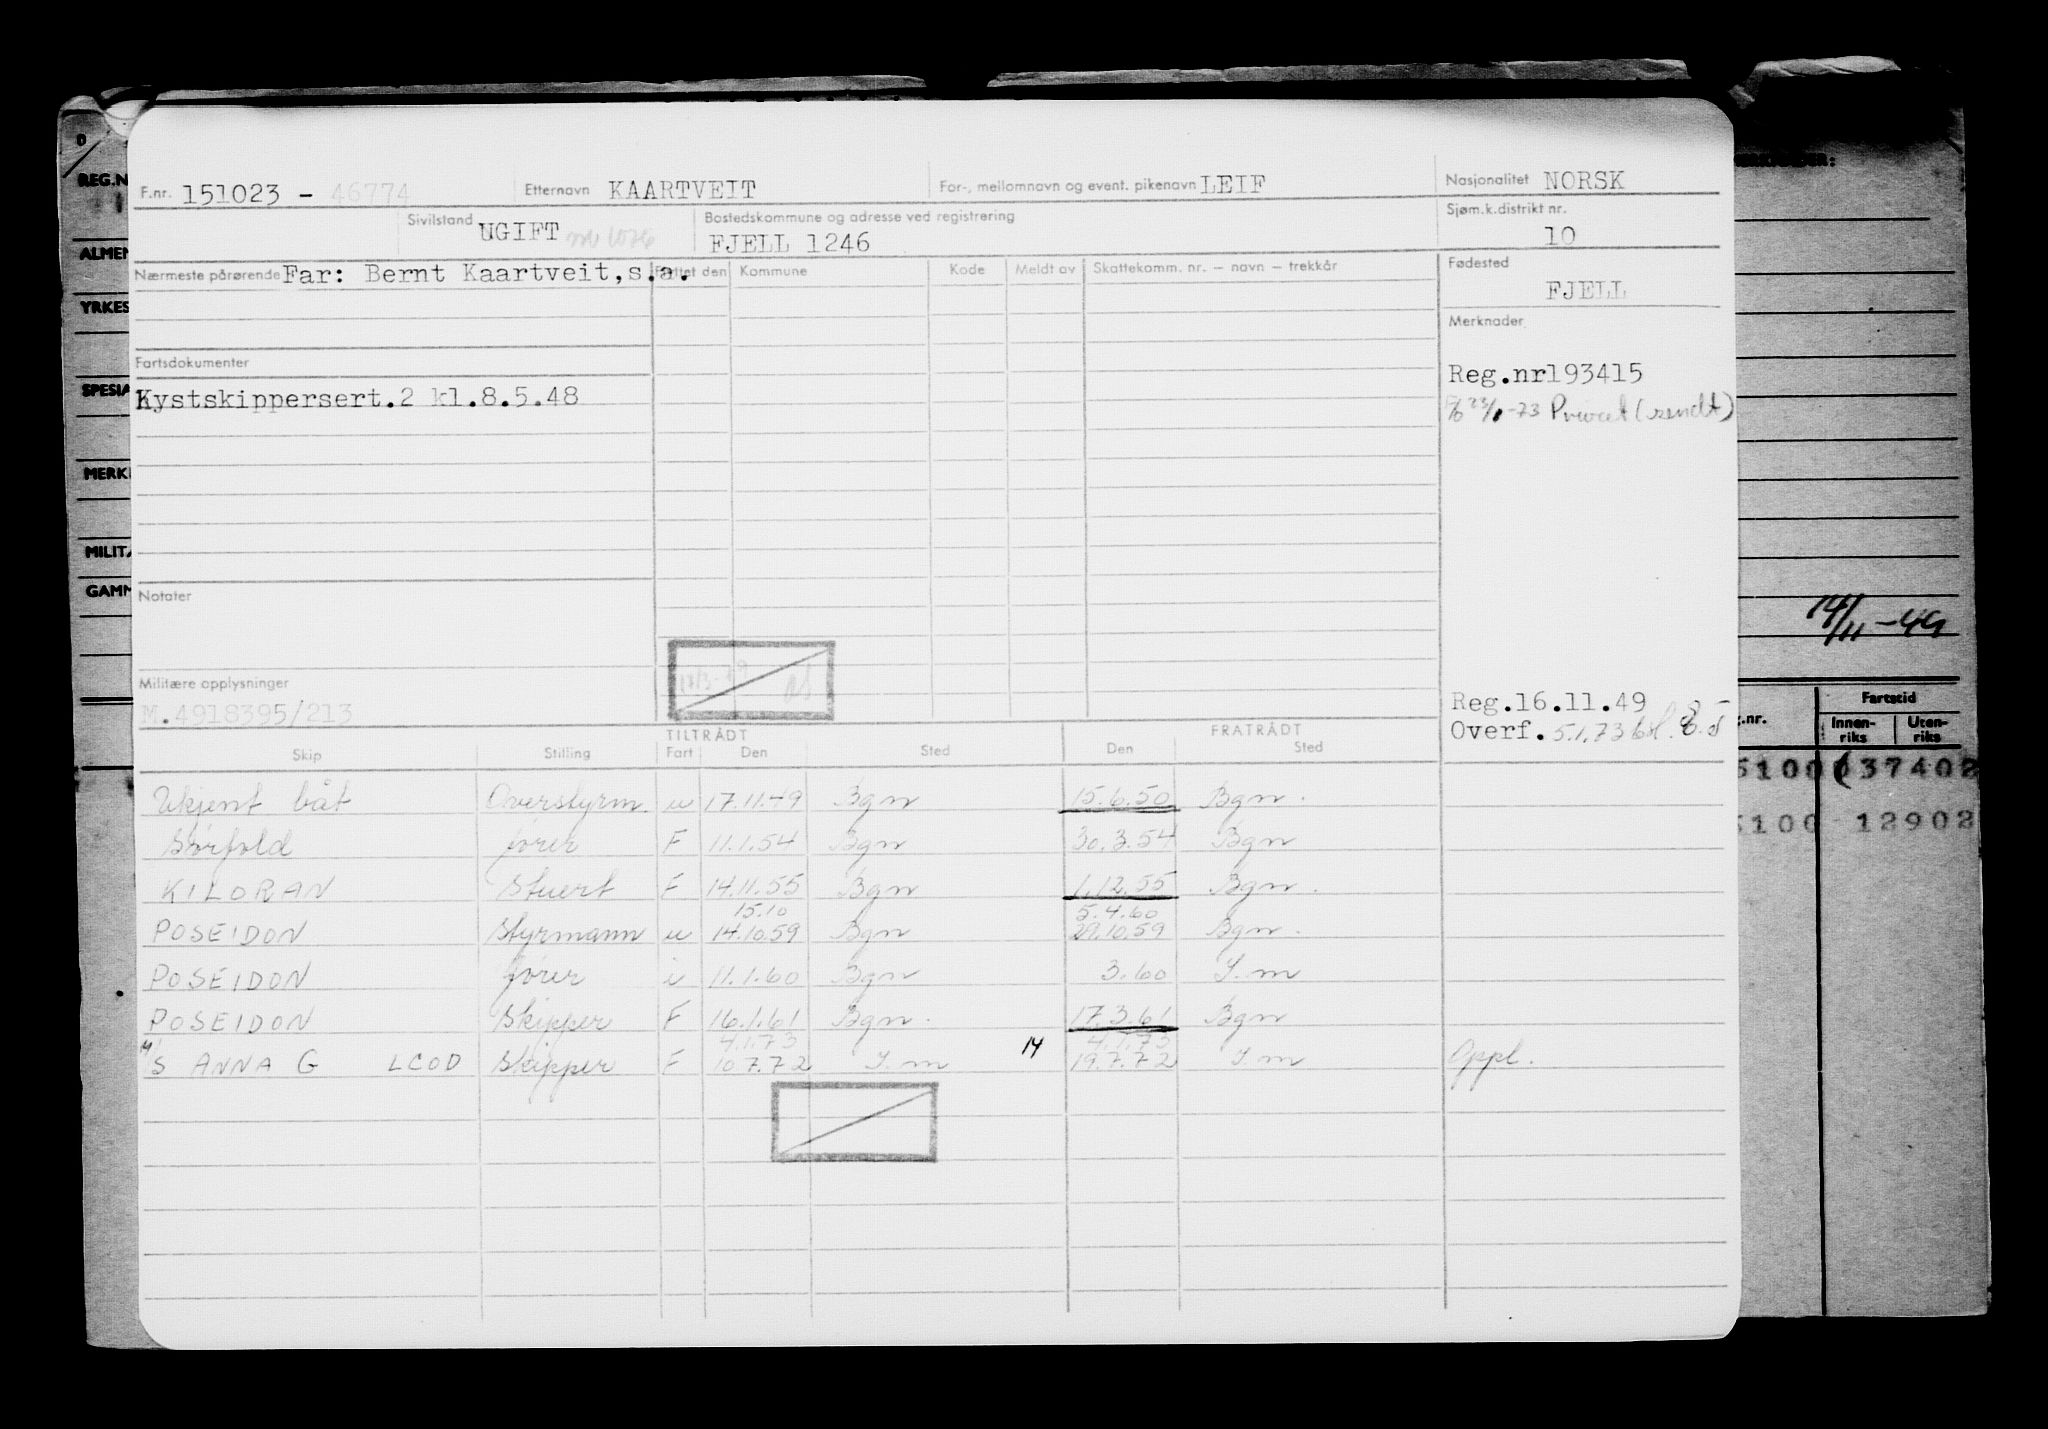 F.nr. 151023 - 46774 Etternavn KAARTVEIT For-, mellomnavn og event. pikenavn LEIF Nasjonalitet NORSK
Sivilstand UGIFT Bostedskommune og adresse ved registrering FJELL 1246 Sjøm.k.distrikt nr. 10
Nærmeste pårørende Far: Bernt Kaartveit,s.a. Flyttet den Kommune Kode Meldt av Skattekomm. nr. – navn – trekkår Fødested
FJELL
Merknader
Fartsdokumenter
Kystskippersert.2 kl.8.5.48
Reg.nr193415
-73 Privat (sendt)
Notater
Militære opplysninger
M.4918395/213
Reg.16.11.49
Overf. 5.1.73
TILTRÅDT FRATRÅDT
Skip Stilling Fart Den Sted Den Sted
Ukjent båt Overstyrm. u 17.11.49 Bgn 15.6.50 Bgn.
Sørfold fører F 11.1.54 Bgn 30.3.54 Bgn
KILORAN Stuert F 14.11.55 Bgn 1.12.55 Bgn.
15.10 5.4.60
POSEIDON Styrmann u 14.10.59 Bgn 29.10.59 Bgn.
POSEIDON fører i 11.1.60 Bgn 3.60 S.m
POSEIDON Skipper F 16.1.61 Bgn. 17.3.61 Bgn
4.1.73 4.1.73
M/S ANNA G LCOD Skipper F 10.7.72 S.m 14 19.7.72 S m Oppl.
0
REG.N
ALMEN
YRKES
SPESIA
MERK
MILIT
GAMM
14/11-49
Fartstid
g.nr. Innen-riks Uten-riks
5100 37402
5100 12902